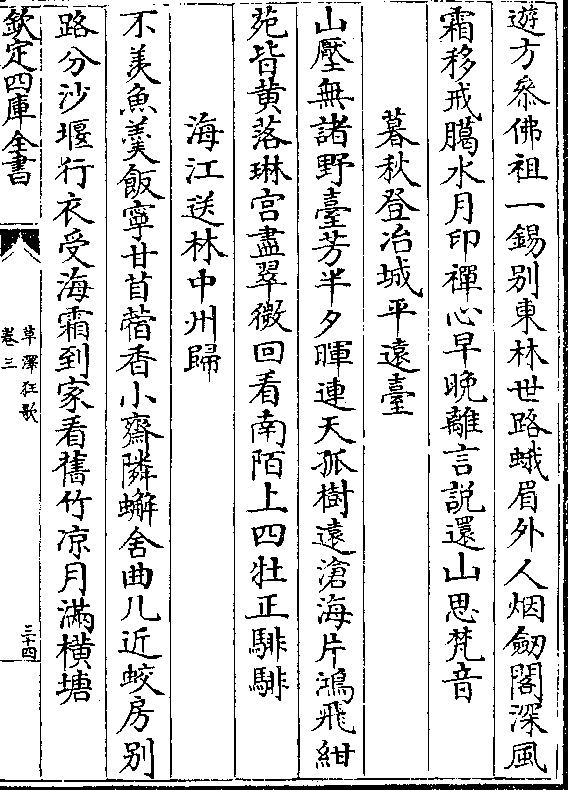 遊方叅佛祖一錫别東林世路蛾眉外人烟劒閣深風
霜移戒臈水月印禪心早晚離言説還山思梵音
暮秋登冶城平遠臺
山壓無諸野臺芳半夕暉連天孤樹遠滄海片鴻飛紺
苑皆黄落琳宫盡翠微回看南陌上四牡正騑騑
海江送林中州歸
不羙魚羮飯寧甘苜蓿香小齋隣蠏舍曲几近蛟房别
路分沙堰行衣受海霜到家看舊竹凉月滿横塘
欽定四庫全書
草澤狂歌
卷三
三十四